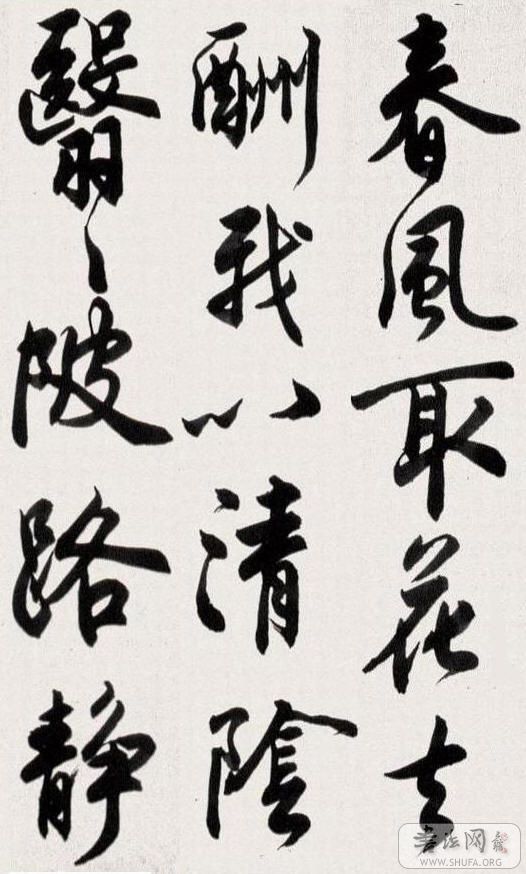 春風取花去
酬我以清陰
翳〻陂路靜
書法网
WWW.SHUFA.ORG